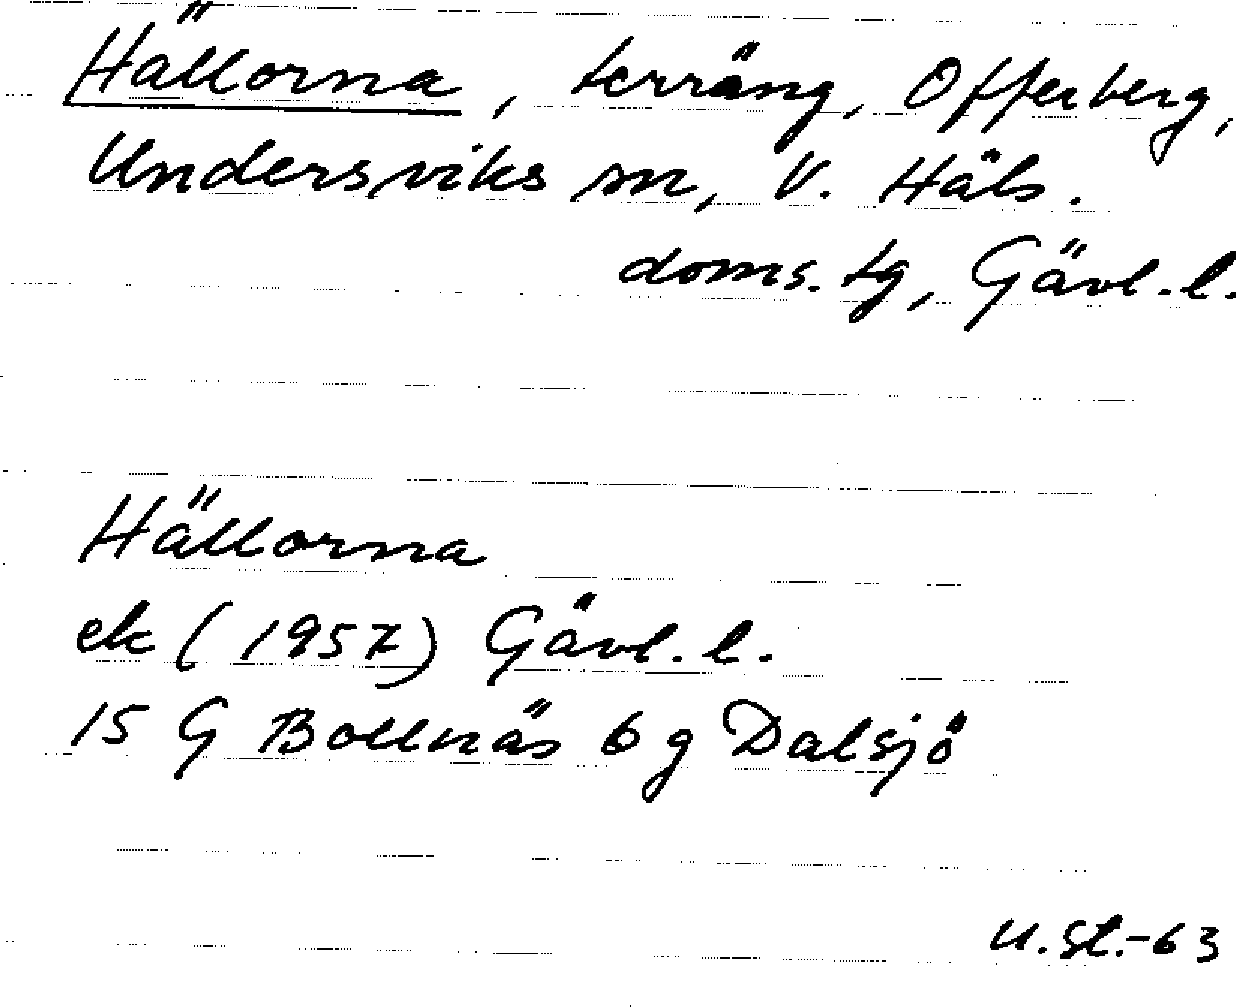 Hällorna, terräng, Offerberg,
Undersviks sn, V. Häls.
doms. tg, Gävl. l.
Hällorna
ek (1957) Gävl. l.
15 G Bollnäs 6 g Dalsjö
U. St.-63